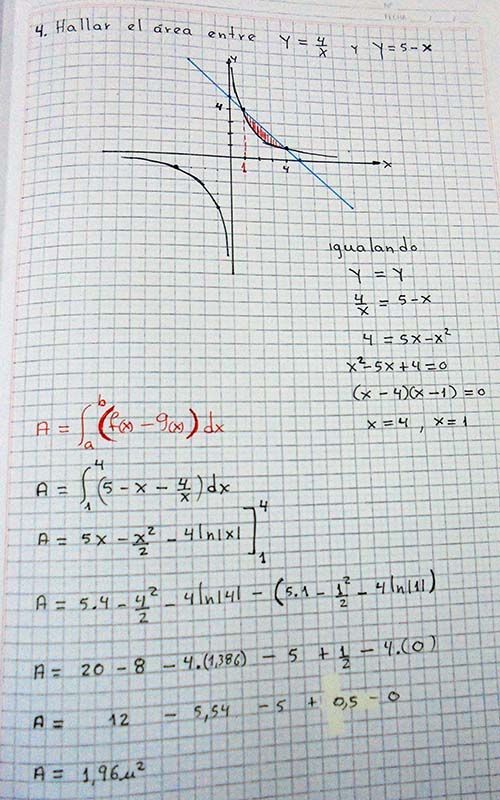 4. Hallar el área entre y = 4/x y y = 5 - x
y
4
1
4
x
igualando
y = y
4/x = 5 - x
4 = 5x - x²
x² - 5x + 4 = 0
(x - 4)(x - 1) = 0
x = 4 , x = 1
A = ∫ₐᵇ (f(x) - g(x)) dx
A = ∫₁⁴ (5 - x - 4/x) dx
A = 5x - x²/2 - 4 ln|x| ]₁⁴
A = 5.4 - 4²/2 - 4 ln|4| - (5.1 - 1²/2 - 4 ln|1|)
A = 20 - 8 - 4.(1,386) - 5 + 1/2 - 4.(0)
A = 12 - 5,54 - 5 + 0,5 - 0
A = 1,96 u²